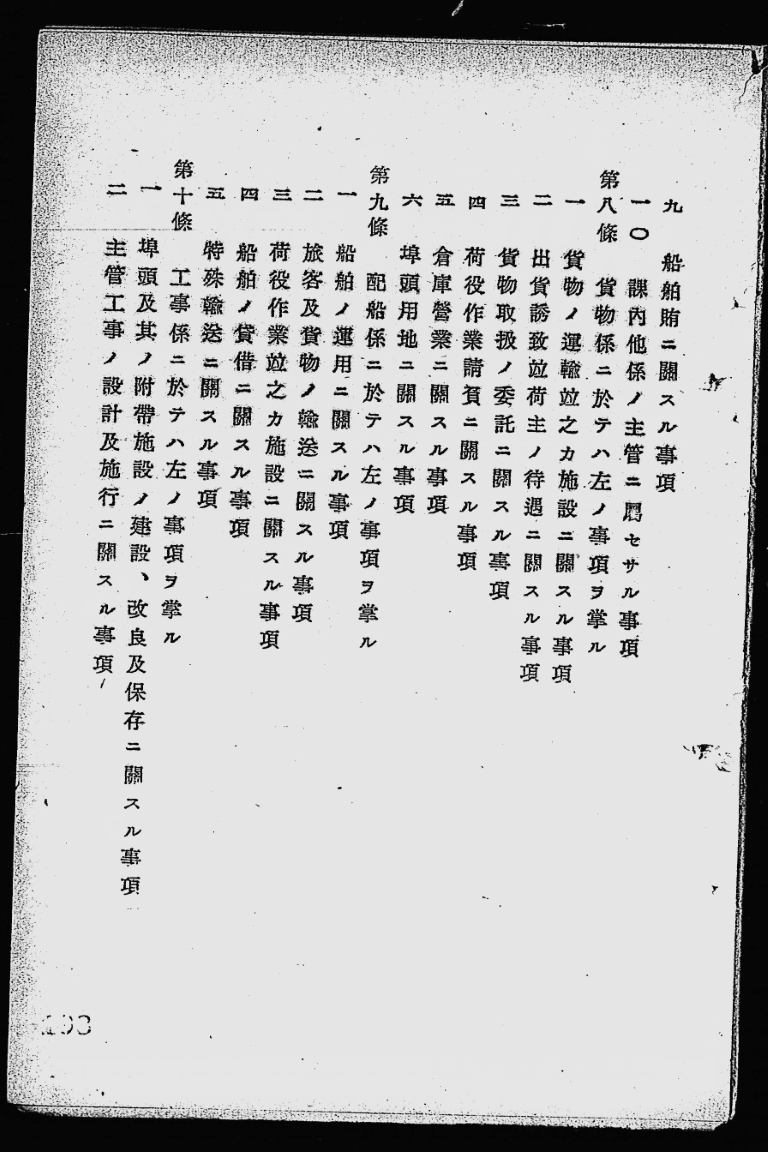 九　船舶賄ニ關スル事項
一〇　課內他係ノ主管ニ屬セサル事項
第八條　貨物係ニ於テハ左ノ事項ヲ掌ル
一　貨物ノ運輸竝之カ施設ニ關スル事項
二　出貨誘致竝荷主ノ待遇ニ關スル事項
三　貨物取扱ノ委託ニ關スル事項
四　荷役作業請負ニ關スル事項
五　倉庫營業ニ關スル事項
六　埠頭用地ニ關スル事項
第九條　配船係ニ於テハ左ノ事項ヲ掌ル
一　船舶ノ運用ニ關スル事項
二　旅客及貨物ノ輸送ニ關スル事項
三　荷役作業竝之カ施設ニ關スル事項
四　船舶ノ貸借ニ關スル事項
五　特殊輸送ニ關スル事項
第十條　工事係ニ於テハ左ノ事項ヲ掌ル
一　埠頭及其ノ附帶施設ノ建設、改良及保存ニ關スル事項
二　主管工事ノ設計及施行ニ關スル事項